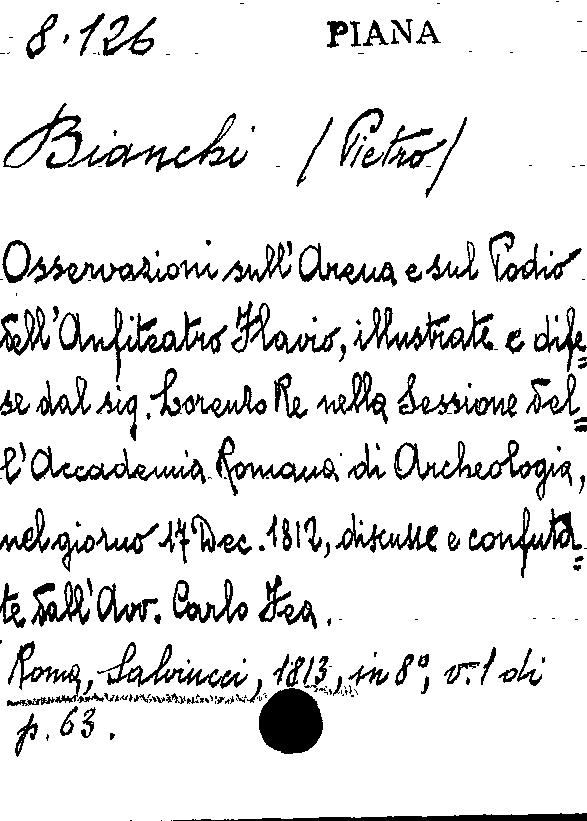 8.126 PIANA
Bianchi (Pietro)
Osservazioni sull'Arena e sul Podio
dell'Anfiteatro Flavio, illustrate e dife=
se dal sig. Lorenzo Re nella Sessione del=
l'Accademia Romana di Archeologia,
nel giorno 17 Dec. 1812, discusse e confuta=
te dall'Avv. Carlo Fea.
Roma, Salviucci, 1813, in 8°, v. 1 di
p. 63.